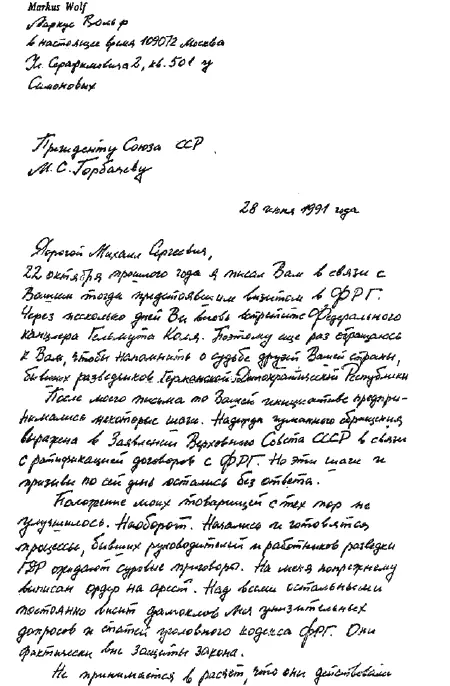 Markus Wolf
Маркус Вольф
в настоящее время 109072 Москва
Ул. Серафимовича 2, кв. 501 у
Симоновых
Президенту Союза ССР
М.С. Горбачеву
28 июня 1991 года
Дорогой Михаил Сергеевич,
22 октября прошлого года я писал Вам в связи с
Вашим тогда предстоявшим визитом в ФРГ.
Через несколько дней Вы вновь встретите Федерального
канцлера Гельмута Коля. Поэтому еще раз обращаюсь
к Вам, чтобы напомнить о судьбе друзей Вашей страны,
бывших разведчиков Германской Демократической Республики
После моего письма по Вашей инициативе предпри-
нимались некоторые шаги. Надежда гуманного обращения
выражена в Заявлении Верховного Совета СССР в связи
с ратификацией договоров с ФРГ. Но эти шаги и
призывы по сей день остались без ответа.
Положение моих товарищей с тех пор не
улучшилось. Наоборот. Начались и готовятся
процессы, бывших руководителей и работников разведки
ГДР ожидают суровые приговоры. На меня попрежнему
выписан ордер на арест. Над всеми остальными
постоянно висит дамоклов меч унизительных
допросов и статей уголовного кодекса ФРГ. Они
фактически вне защиты закона.
Не принимается в расчет, что они действовали